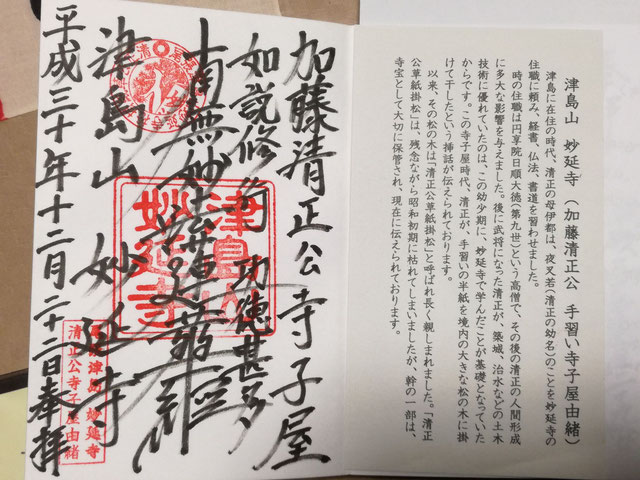 津島山 妙延寺 （加藤清正公 手習い寺子屋由緒）
津島に在住の時代、清正の母伊都は、夜叉若（清正の幼名）のことを妙延寺の
住職に頼み、経書、仏法、書道を習わせました。
時の住職は円享院日順大徳（第九世）という高僧で、その後の清正の人間形成
に多大な影響を与えました。後に武将になった清正が、築城、治水などの土木
技術に優れていたのは、この幼少期に、妙延寺で学んだことが基礎となっていた
からです。この寺子屋時代、清正が、手習いの半紙を境内の大きな松の木に掛
けて干したという挿話が伝えられております。
以来、その松の木は「清正公草紙掛松」と呼ばれ長く親しまれました。「清正
公草紙掛松」は、残念ながら昭和初期に枯れてしまいましたが、幹の一部は、
寺宝として大切に保管され、現在に伝えられております。
加藤清正公寺子屋
如説修行 功徳甚多
南無妙法蓮華経
津島山 妙延寺
平成三十年十二月二十二日奉拝
津島山
妙延寺
津島 妙延寺
清正公寺子屋由緒